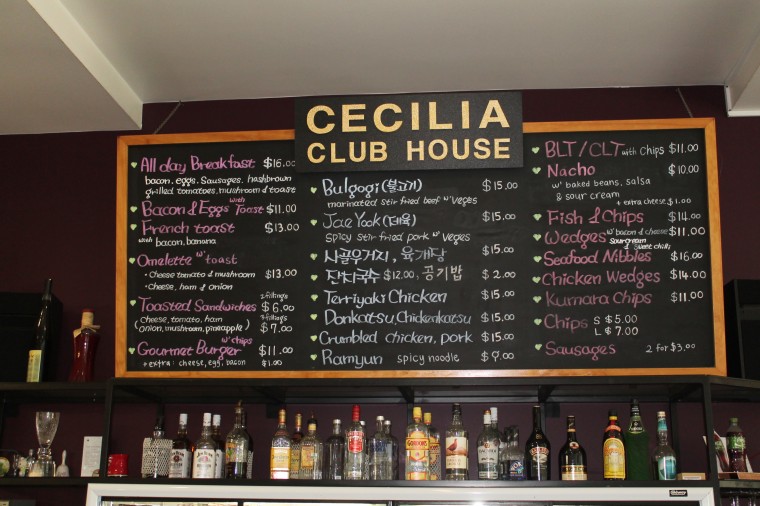 CECILIA
CLUB HOUSE
All day Breakfast $16.00
bacon, eggs, Sausages, hashbrown
grilled tomatoes, mushroom & toast
Bacon & Eggs with Toast $11.00
French toast $13.00
with bacon, banana
Omelette w' toast
• Cheese tomato & mushroom $13.00
• Cheese, ham & onion
Toasted Sandwiches 2 fillings $6.00
(cheese, tomato, ham 3 fillings
onion, mushroom, pineapple) $7.00
Gourmet Burger w' chips $11.00
+ extra cheese, egg, bacon $1.00
Bulgogi (불고기) $15.00
marinated stir fried beef w' Veges
Jae Yook (제육) $15.00
spicy stir fried pork w' Veges
사골우거지, 육개장 $15.00
잔치국수 $12.00, 공기밥 $2.00
Terriyaki Chicken $15.00
Donkatsu, Chickenkatsu $15.00
Crumbled chicken, pork $15.00
Ramyun spicy noodle $9.00
BLT/CLT with Chips $11.00
Nacho $10.00
w' baked beans, salsa
& sour cream
+ extra cheese $1.00
Fish & Chips $14.00
Wedges w' bacon & cheese $11.00
Sourcream & sweet chilli
Seafood Nibbles $16.00
Chicken Wedges $14.00
Kumara Chips $11.00
Chips S $5.00
L $7.00
Sausages 2 for $3.00
GORDON'S